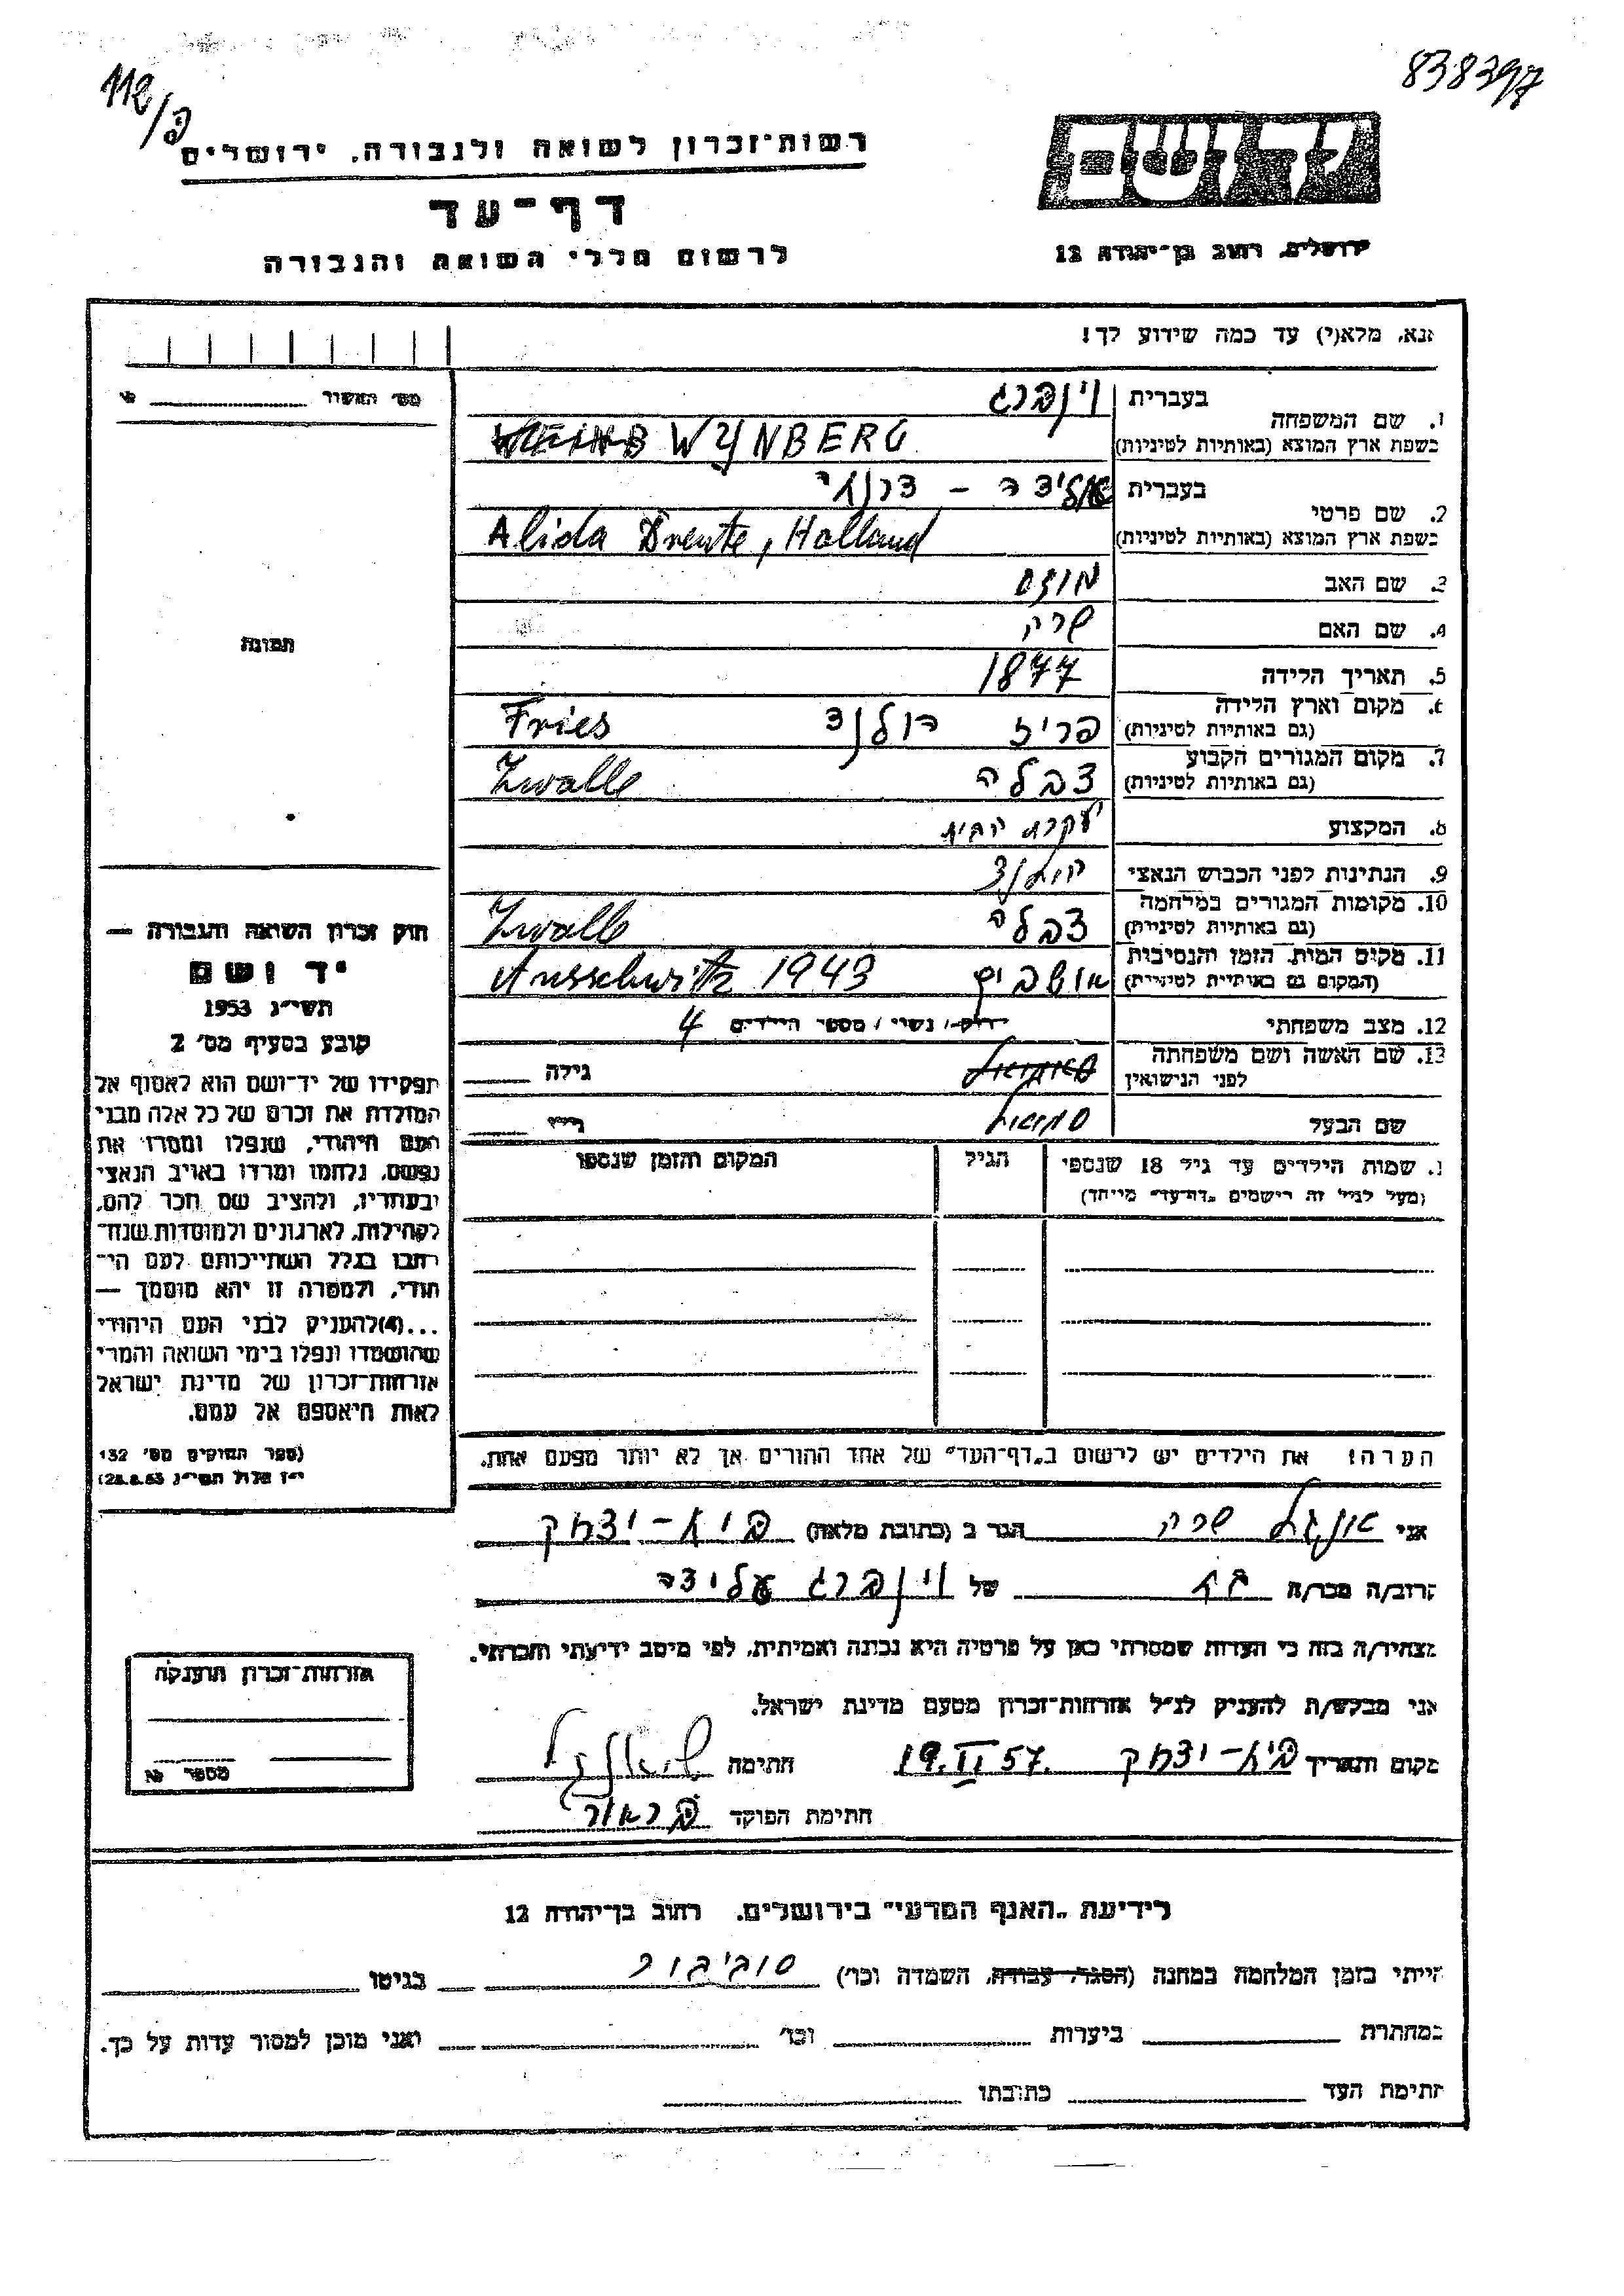 838397
112/פ
רשות־זכרון לשואה ולגבורה, ירושלים
יד ושם
דף־עד
ירושלים, רחוב בן־יהודה 12
לרשום חללי השואה והגבורה
נא, מלא(י) עד כמה שידוע לך!
מס' האשור №
1. שם המשפחה
בעברית וינברג
בשפת ארץ המוצא (באותיות לטיניות) WYNBERG
2. שם פרטי
בעברית אלידה -
בשפת ארץ המוצא (באותיות לטיניות) Alida Drente, Holland
3. שם האב מוזס
4. שם האם שרה
תמונה
5. תאריך הלידה 1877
6. מקום וארץ הלידה
(גם באותיות לטיניות) פריז הולנד Fries
7. מקום המגורים הקבוע
(גם באותיות לטיניות) צבלה Zwolle
8. המקצוע עקרת הבית
9. הנתינות לפני הכבוש הנאצי הולנד
10. מקומות המגורים במלחמה
(גם באותיות לטיניות) צבלה Zwolle
11. מקום המות, הזמן והנסיבות
(המקום גם באותיות לטיניות) אושביץ Ausschwitz 1943
12. מצב משפחתי רווק/ נשוי/ מספר הילדים 4
13. שם האשה ושם משפחתה
לפני הנישואין סאמואל גילה
שם הבעל סמואל גילו
חוק זכרון השואה והגבורה —
יד ושם
תשי"ג 1953
קובע בסעיף מס' 2
תפקידו של יד־ושם הוא לאסוף אל
המולדת את זכרם של כל אלה מבני
העם היהודי, שנפלו ומסרו את
נפשם, נלחמו ומרדו באויב הנאצי
ובעוזריו, ולהציב שם וזכר להם,
לקהילות, לארגונים ולמוסדות שנח־
רבו בגלל השתייכותם לעם הי־
הודי, ולמטרה זו יהא מוסמך —
...(4)להעניק לבני העם היהודי
שהושמדו ונפלו בימי השואה והמרי
אזרחות־זכרון של מדינת ישראל
לאות היאספם אל עמם.
(ספר החוקים מס' 132
י"ז אלול תשי"ג 28.8.53)
שמות הילדים עד גיל 18 שנספו הגיל המקום והזמן שנספו
(מעל לגיל זה רישמים "דף־עד" מיוחד)
הערה! את הילדים יש לרשום ב"דף־העד" של אחד ההורים אך לא יותר מפעם אחת.
אני אנגל שרה הגר ב (כתובת מלאה) בית-יצחק
קרוב/ה מכר/ה בת של וינברג עלידה
מצהיר/ה בזה כי העדות שמסרתי כאן על פרטיה היא נכונה ואמיתית, לפי מיטב ידיעתי והכרתי.
אני מבקש/ת להעניק לנ"ל אזרחות־זכרון מטעם מדינת ישראל.
מקום ותאריך בית-יצחק 19.II.57 חתימה
חתימת הפוקד
אזרחות־זכרון הוענקה
מספר №
לידיעת "האגף המדעי" בירושלים. רחוב בן־יהודה 12
הייתי בזמן המלחמה במחנה (הסגר, עבודה, השמדה וכו') סוביבור בגיטו
במחתרת ביערות וכו' ואני מוכן למסור עדות על כך.
חתימת העד כתובתו